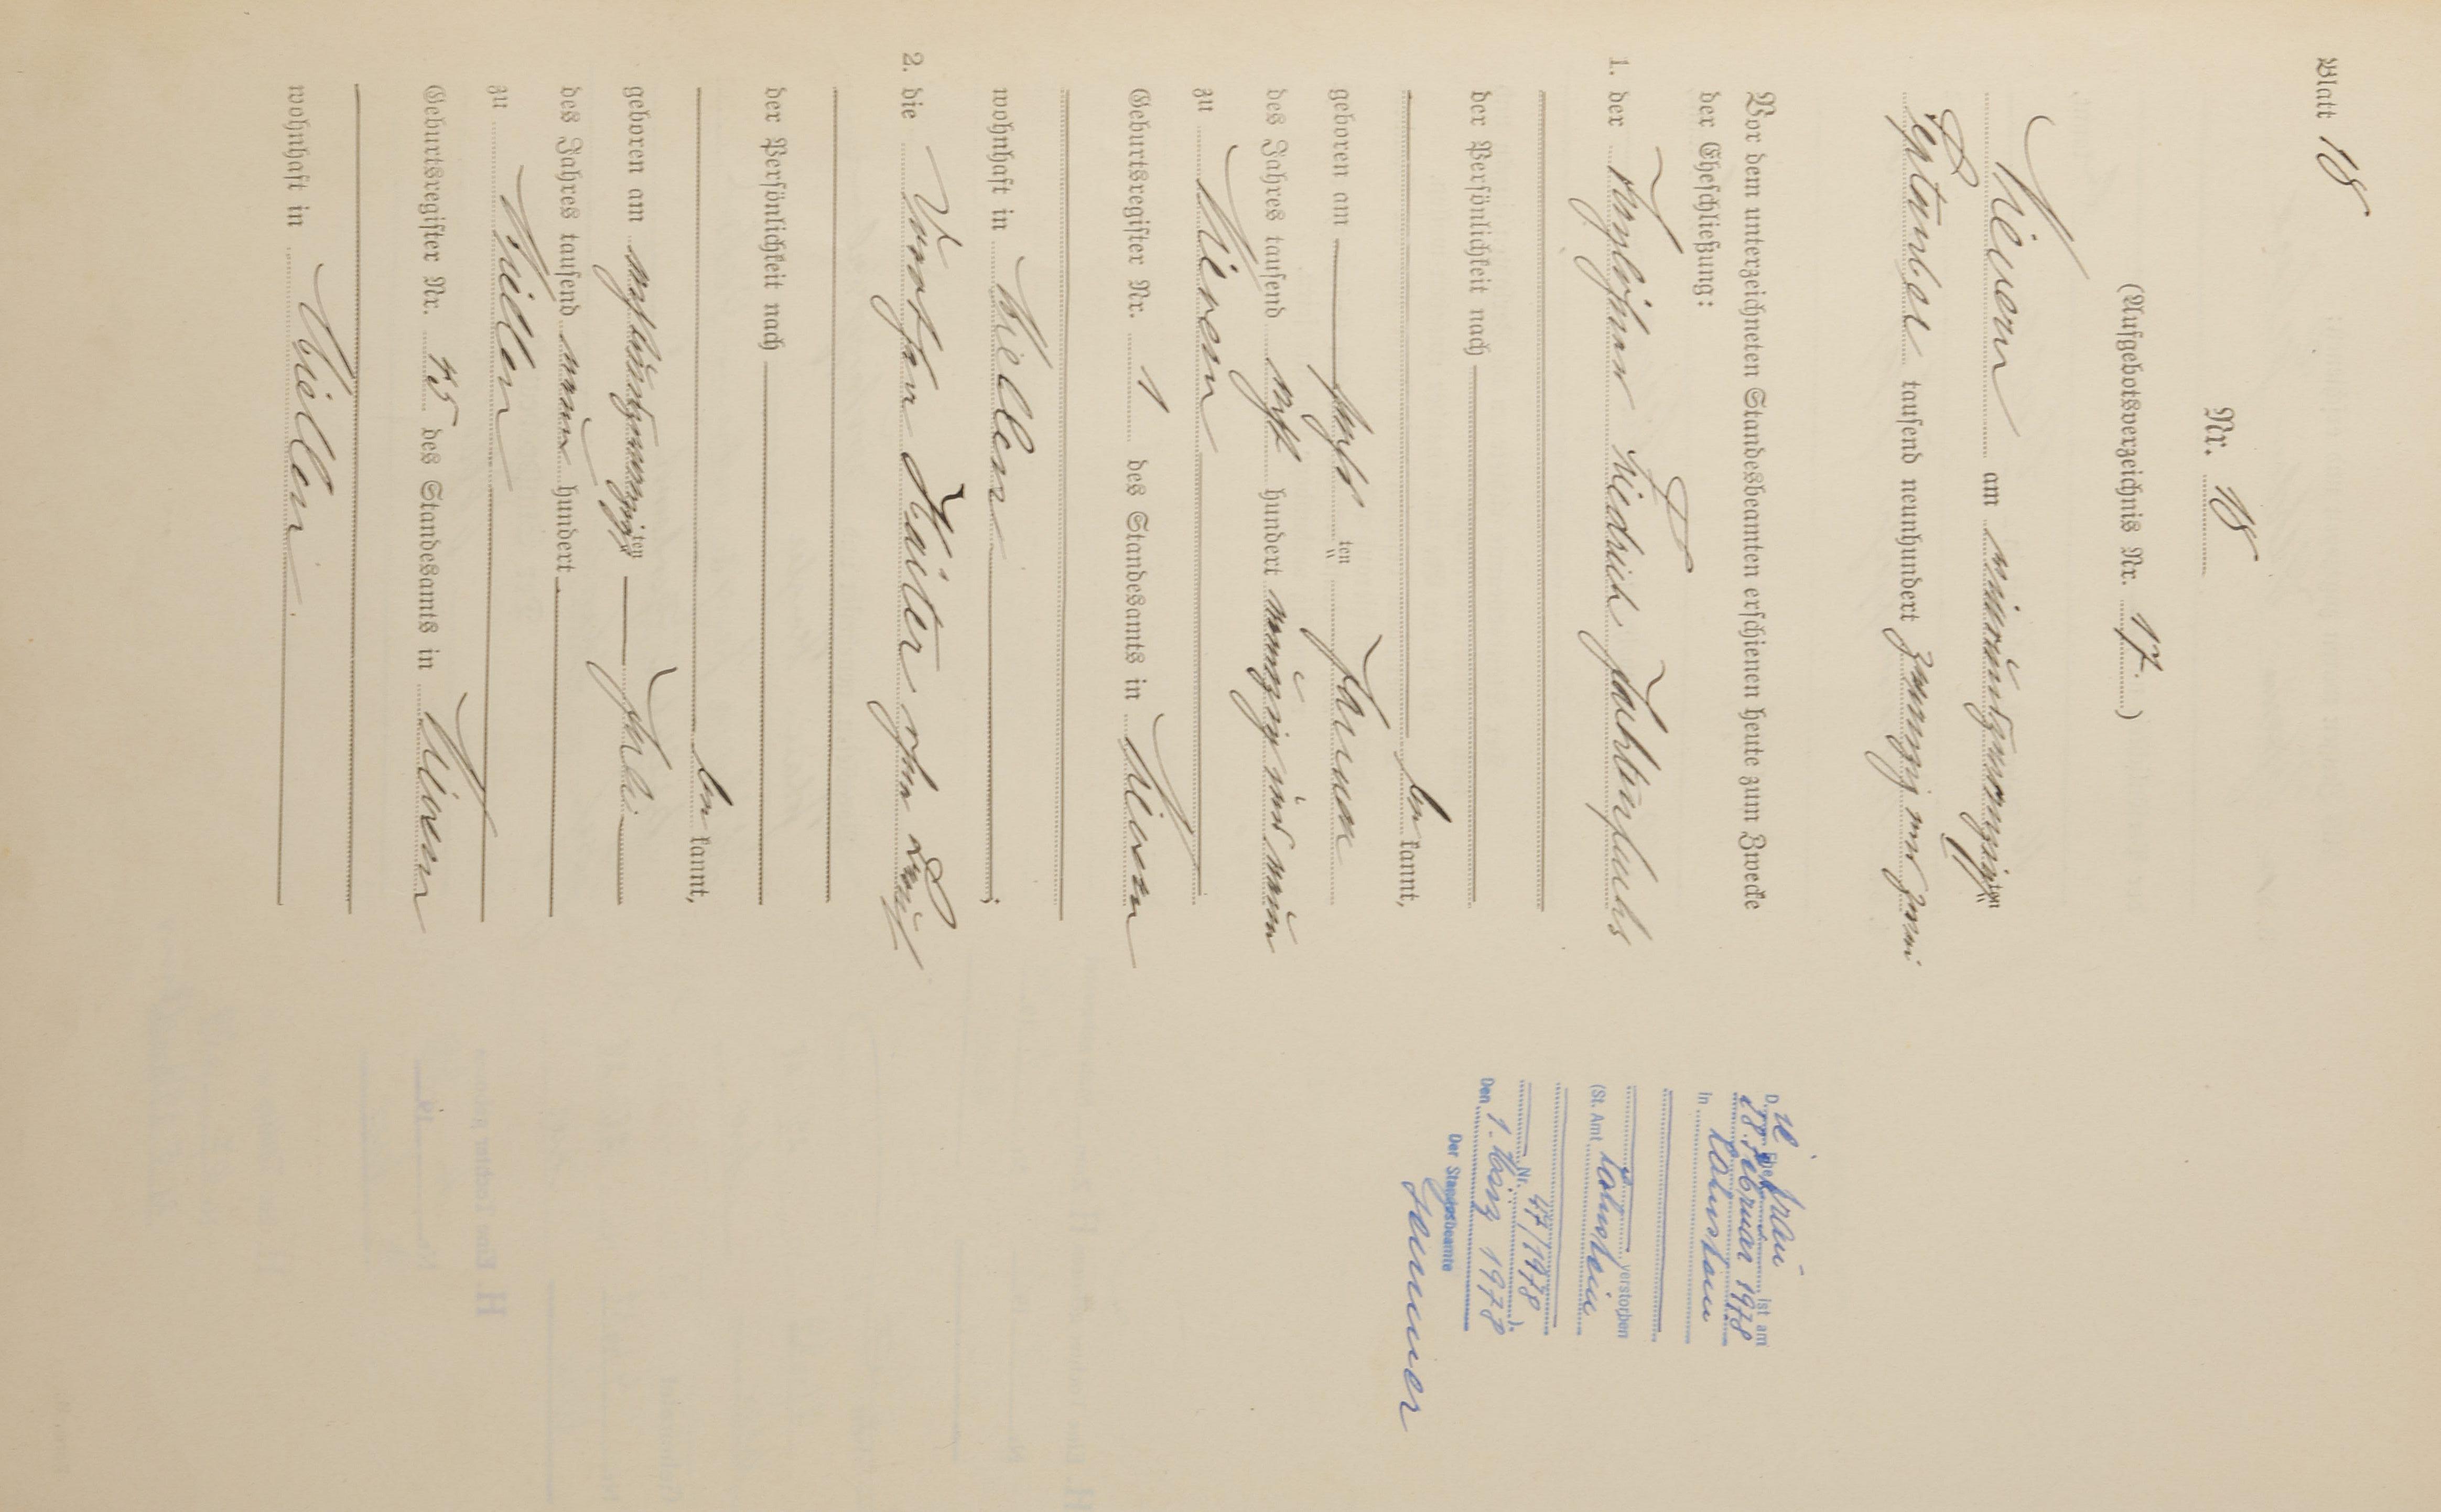 Blatt 18
Nr. 18
(Aufgebotsverzeichnis Nr. 17.)
Nievern am vierundzwanzigsten
September tausend neunhundert zwanzig und zwei
Vor dem unterzeichneten Standesbeamten erschienen heute zum Zwecke
der Eheschließung:
1. der Taglöhner Friedrich
der Persönlichkeit nach
be kannt,
geboren am sechs ten Januar
des Jahres tausend acht hundert neunzig und neun
zu Nievern
Geburtsregister Nr. 1 des Standesamts in Nievern
wohnhaft in Miellen ;
2. die Dorothea ohne Beruf
der Persönlichkeit nach
be kannt,
geboren am achtundzwanzigsten Juli
des Jahres tausend neun hundert
zu Miellen
Geburtsregister Nr. 45 des Standesamts in Nievern
wohnhaft in Miellen
Die Ehefrau ist am
28. Februar 1978
in Lahnstein
verstorben
(St. Amt Lahnstein
Nr. 47/1978 ).
Den 1. März 1978
Der Standesbeamte